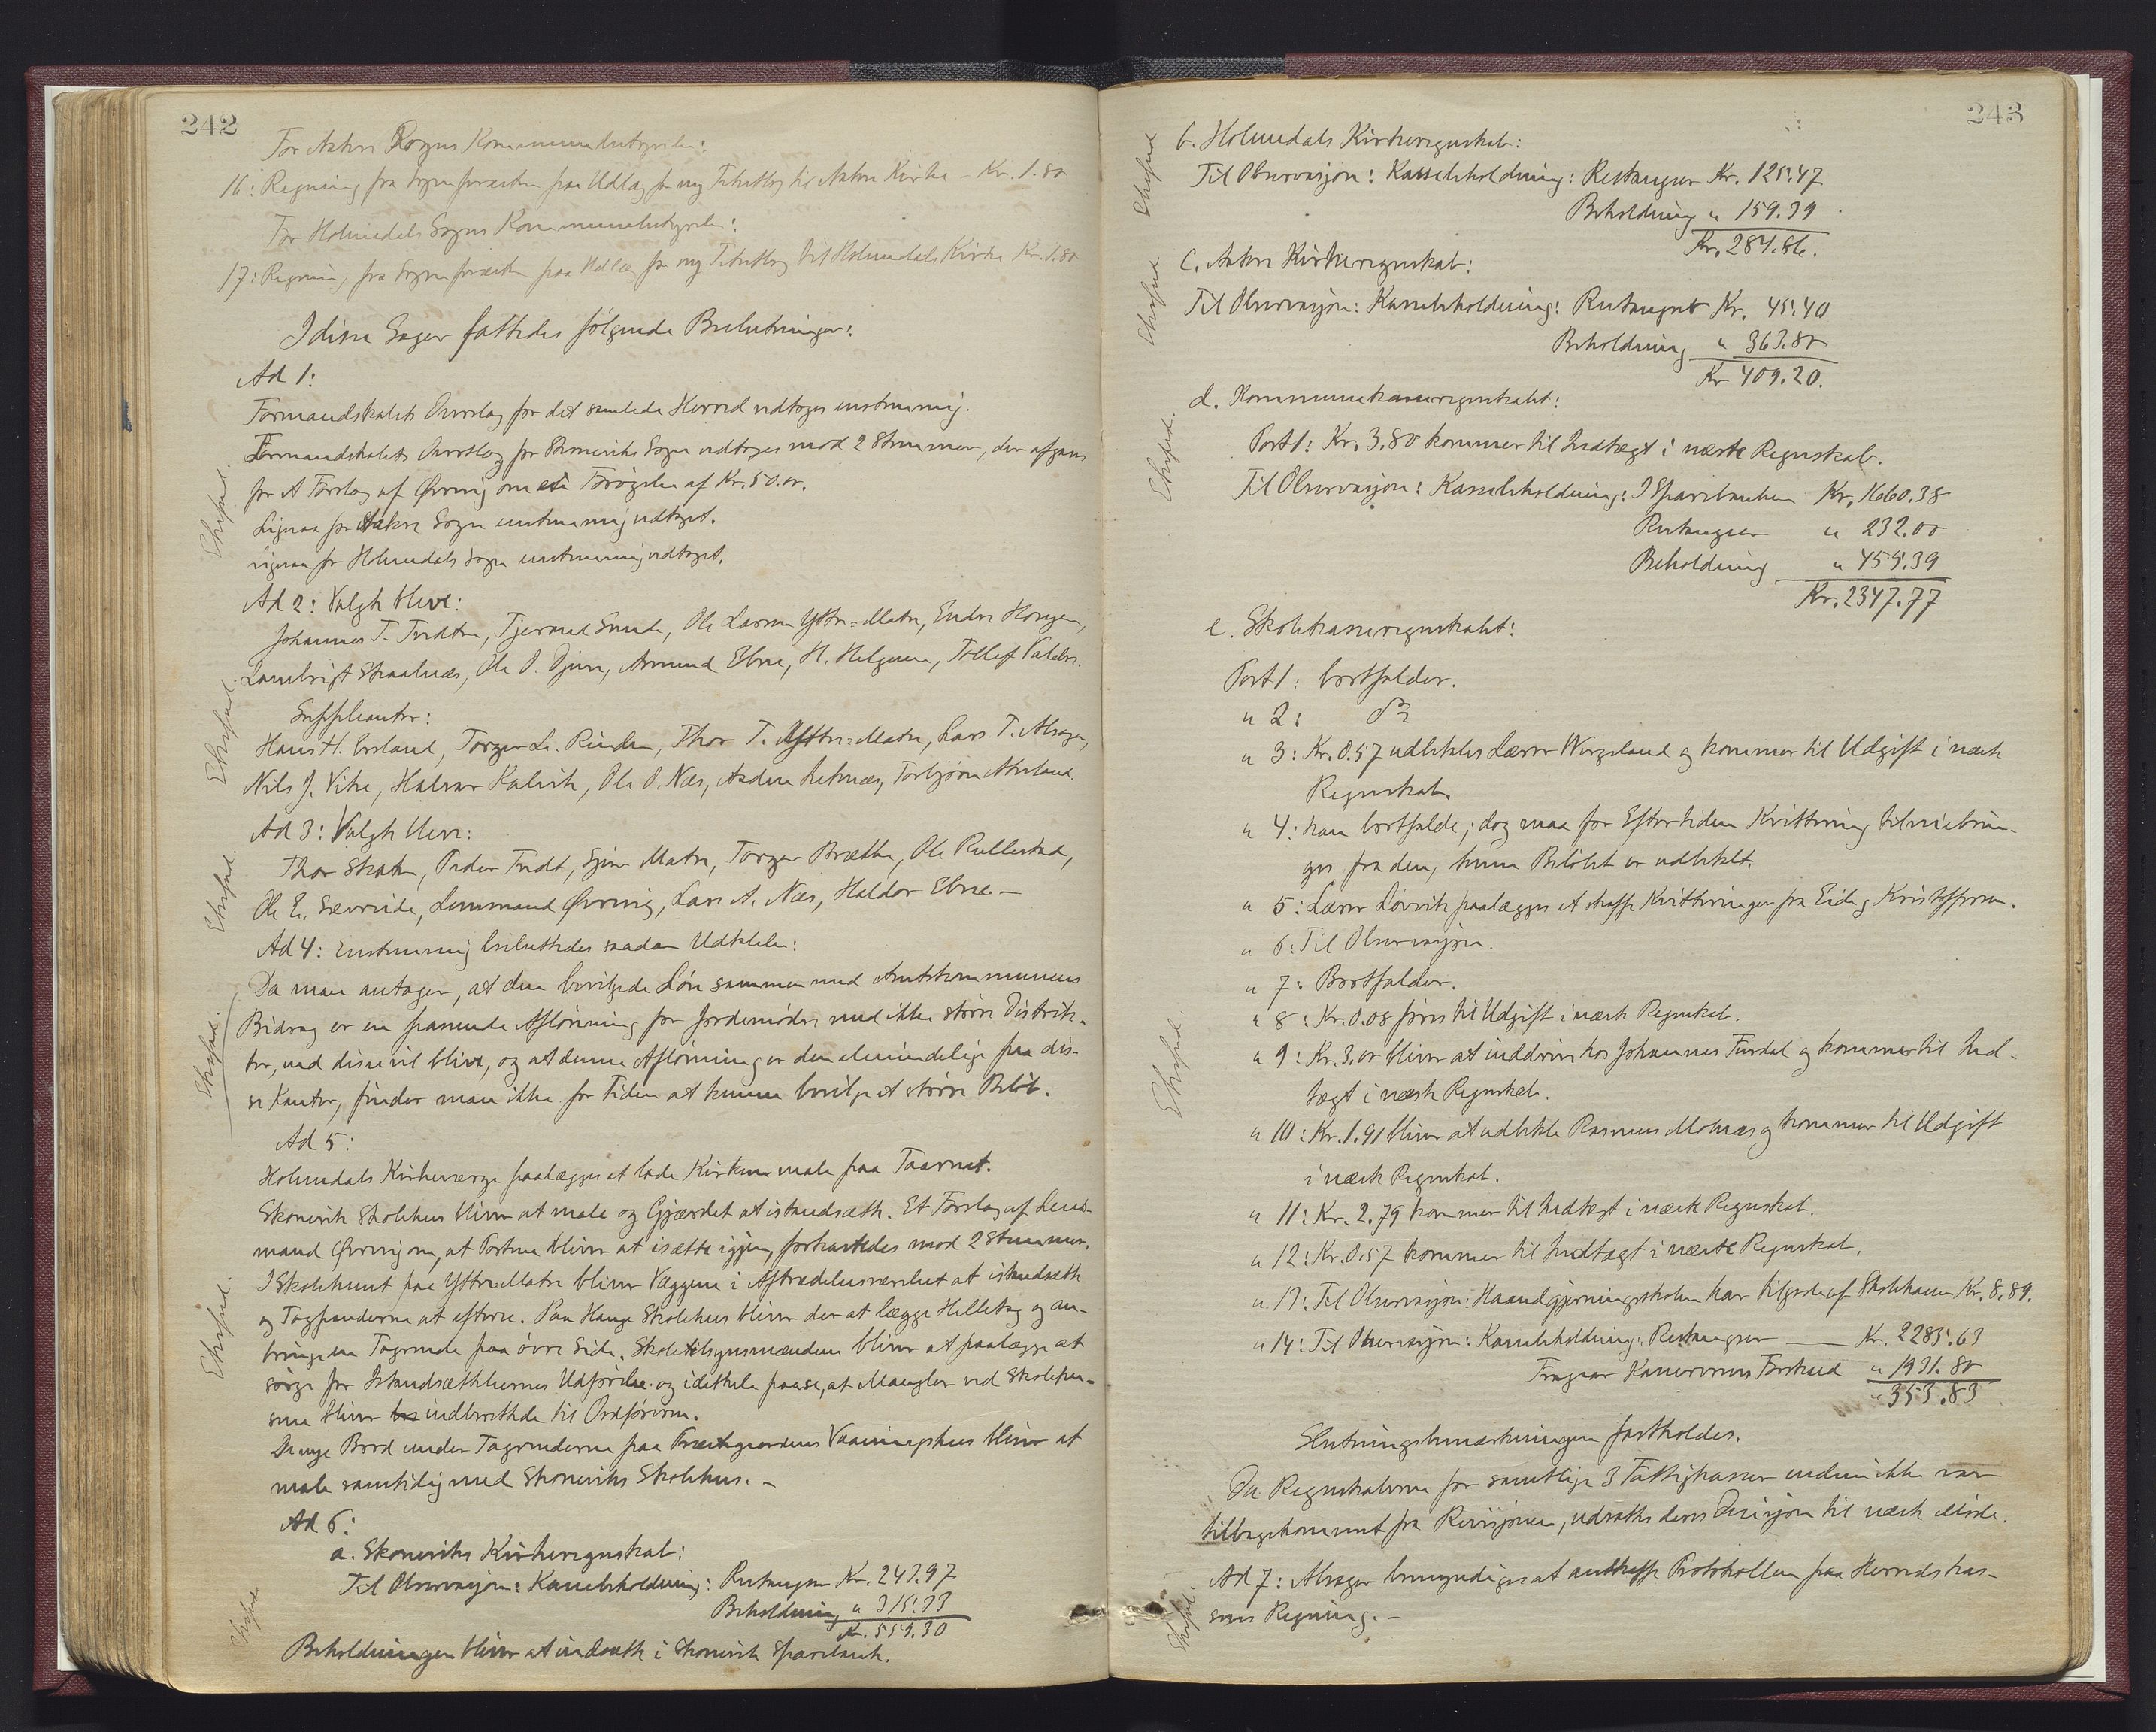 242
For Aakre Sogns Kommunebestyrelse:
16: Regning fra Sognepræsten paa Udlæg for ny til Aakre Kirke - Kr. 1.80
For Holmedals Sogns Kommunebestyrelse:
17: Regning fra Sognepræsten paa Udlæg for ny til Holmedals Kirke Kr. 1.80
I disse Sager fattedes følgende Beslutninger:
Ad 1:
Formandskabets Overslag for det samlede Herred vedtoges enstemmig.
Formandskabets Overslag for Skoneviks Sogn vedtoges mod 2 Stemmer, der afgaves
for et Forslag af Øvrevig om en Forøgelse af Kr. 50.00.
Ligesaa for Aakre Sogn enstemmig vedtaget.
Ligesaa for Holmedals Sogn enstemmig vedtaget.
Ad 2: Valgte bleve:
Johannes T. Tvedten, Tjerand Sunde, Ole Larsen Yttre-Matre, Endre Haugen,
Lambrigt Skaalnæs, Ole O. Djuve, Amund Ebne, H. Helgesen, Tollef Valdre.
Suppleanter:
Hans H. Ersland, Torger L. Rinden, Thor T. Yttre-Matre, Lars T. Alsager,
Nils J. Vike, Halvor Kalvik, Ole O. Næs, Torbjørn Akseland.
Ad 3: Valgte bleve:
Thor Skaten, Peder Tvedt, Sjur Matre, Torger Brætte, Ole Rullestad,
Ole E. Sævereide, Lensmand Øvrevig, Lars A. Næs, Haldor Ebne. -
Ad 4: Enstemmig besluttedes saadan Udtalelse:
Da man antager, at den bevilgede Løn sammen med Amtskommunens
Bidrag er en passende Aflønning for Jordemødre med ikke større Distrik-
ter, end disse vil blive, og at denne Aflønning er den almindelige paa dis-
se Kanter, finder man ikke for Tiden at kunne bevilge et større Beløb.
Ad 5:
Holmedals Kirkeværge paalægges at lade Kirken male paa Taarnet.
Skonevik Skolehus bliver at male og Gjærdet at istandsætte. Et Forslag af Lens-
mand Øvrevig om, at Portene bliver at isætte igjen, forkastedes mod 2 Stemmer.
I Skolehuset paa Yttre Matre bliver Væggene i Aftrædelsesværelset at istandsætte
og Tagpanderne at efterse. Paa Hauge Skolehus bliver der at lægge Helletag og an-
bringe en Tagrende paa øvre Side. Skoletilsynsmændene bliver at paalægge at
sørge for Istandsættelsernes Udførelse og idethele paase, at Mangler ved Skolehu-
sene bliver indberettede til Ordføreren.
De nye Bord under Tagrenderne paa Præstegaardens Vaaningshus bliver at
male samtidig med Skoneviks Skolehus. -
Ad 6:
a. Skoneviks Kirkeregnskab:
Til Observasjon: Kassebeholdning: Restanser Kr. 243.97
Beholdning " 315.33
Kr. 559.30
Beholdningen bliver at indsætte i Skonevik Sparebank.
Exsped.
Exsped.
Exsped.
Exsped.
Exsped.
Exsped.
243
b. Holmedals Kirkeregnskab:
Til Observasjon: Kassebeholdning: Restanser Kr. 125.47
Beholdning " 159.39
Kr. 284.86.
c. Aakre Kirkeregnskab:
Til Observasjon: Kassebeholdning: Restanser Kr. 45.40
Beholdning " 363.80
Kr 409.20.
d. Kommunekasseregnskabet:
Post 1: Kr. 3.80 kommer til Indtægt i næste Regnskab.
Til Observasjon: Kassebeholdning: I Sparebanken Kr. 1660.38
Restanser " 232.00
Beholdning " 455.39
Kr. 2347.77
e. Skolekasseregnskabet:
Post 1: bortfalder.
" 2: do
" 3: Kr. 0.57 udbetales Lærer Wergeland og kommer til Udgift i næste
Regnskab.
" 4: kan bortfalde; dog maa for Eftertiden Kvittering tilveiebrin-
ges fra den, hvem Beløbet er udbetalt.
" 5: Lærer Løvvik paalægges at skaffe Kvitteringer fra Eide og Kristoffersen.
" 6: Til Observasjon.
" 7: Bortfalder.
" 8: Kr. 0.08 føres til Udgift i næste Regnskab.
" 9: Kr. 3.00 bliver at inddrive hos Johannes Fusdal og kommer til Ind-
tægt i næste Regnskab.
" 10: Kr. 1.91 bliver at udbetale Rasmus Molnæs og kommer til Udgift
i næste Regnskab.
" 11: Kr. 2.79 kommer til Indtægt i næste Regnskab.
" 12: Kr. 0.57 kommer til Indtægt i næste Regnskab.
" 13: Til Observasjon: Haandgjerningsskolen har tilgode af Skolekassen Kr. 8.89.
" 14: Til Observasjon: Kassebeholdning: Restanser — Kr. 2285.63
Fragaar Kassererens Forskud " 1931.80
" 353.83
Slutningsbemærkningen fastholdes.
Da Regnskaberne for samtlige 3 Fattigkasser endnu ikke var
tilbagekommet fra Revisjonen, udsættes deres Desisjon til næste Møde.
Ad 7: Alsager bemyndiges at anskaffe Protokollen paa Herredskas-
sens Regning. -
Exsped.
Exsped.
Exsped.
Exsped.
Exsped.